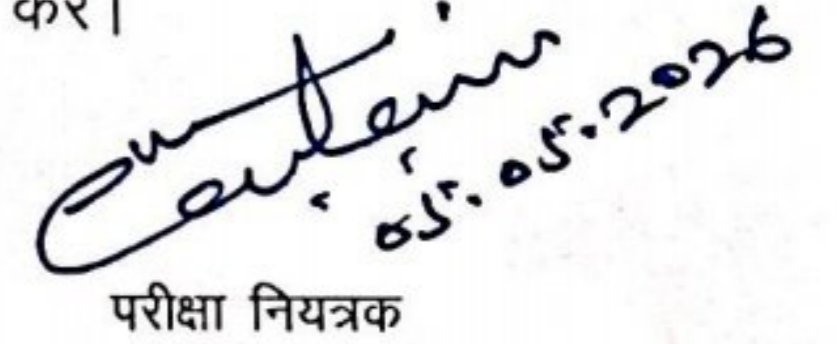 करें।
05.05.2026
परीक्षा नियत्रक